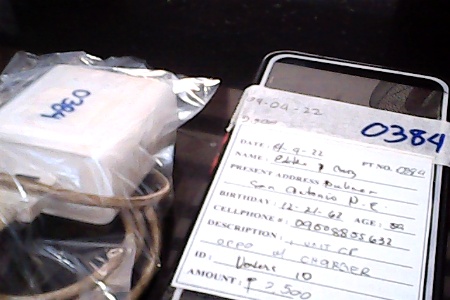 0384
04-04-22
0384
DATE: 4-4-22
NAME: PT NO. 0384
PRESENT ADDRESS
San Antonio N.E.
BIRTHDAY: 12-21-62 AGE:
CELLPHONE #: 09508805632
DESCRIPTION: 1 UNIT CP
OPPO w/ CHARGER
ID: Voters ID
AMOUNT: ₱ 2,500